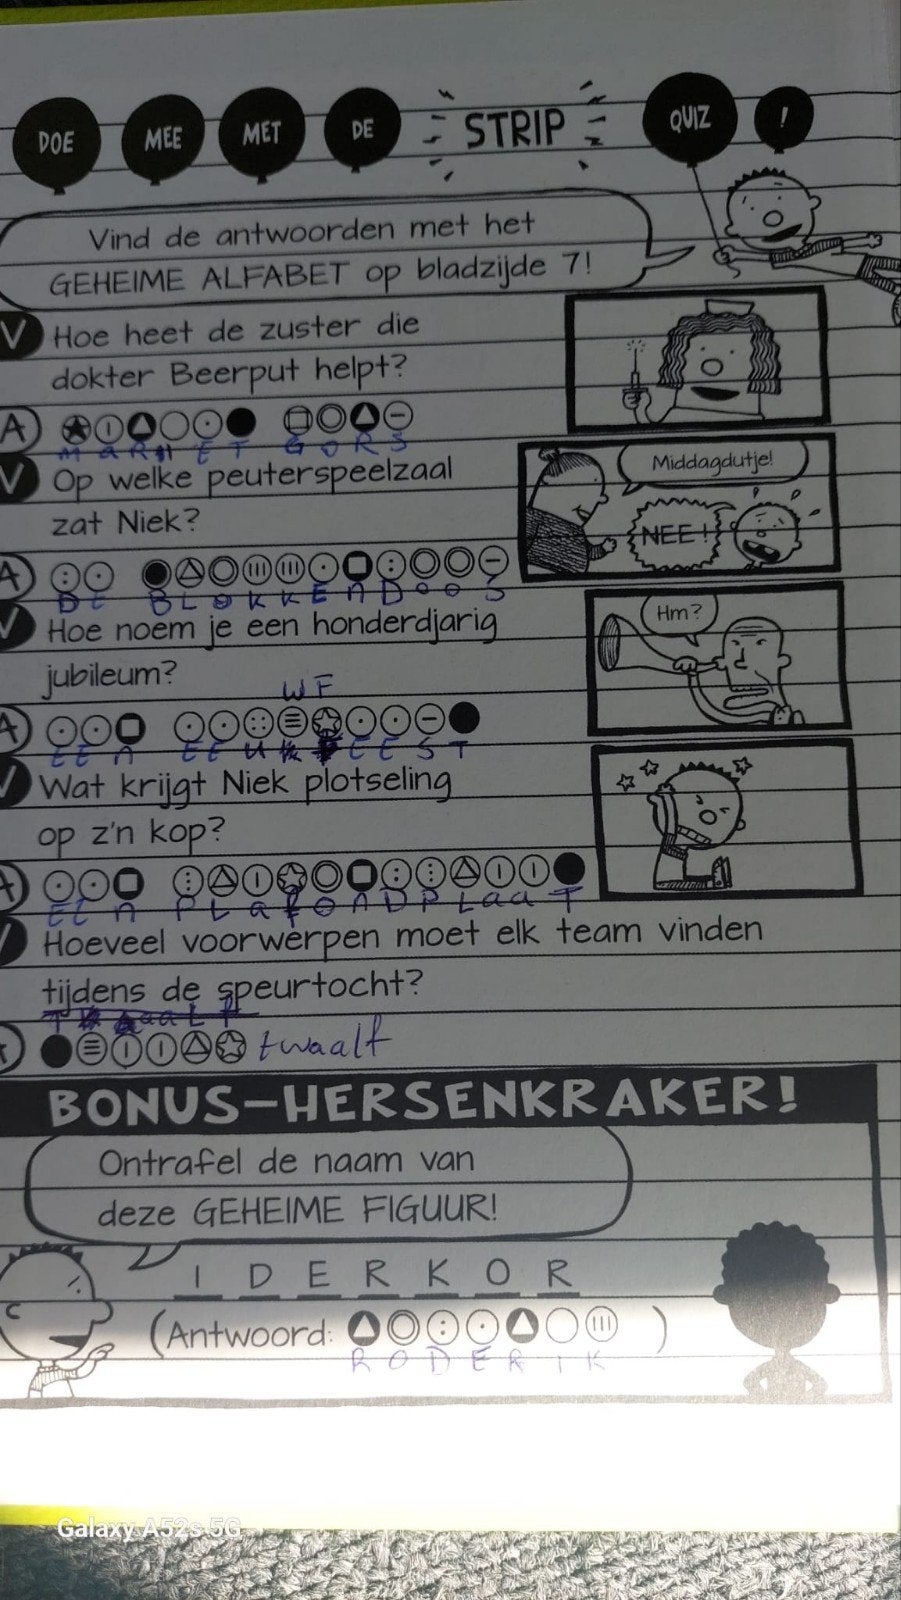 DOE MEE MET DE STRIP QUIZ !
Vind de antwoorden met het
GEHEIME ALFABET op bladzijde 7!
V Hoe heet de zuster die
dokter Beerput helpt?
A
M A R I E T G O R S
V Op welke peuterspeelzaal
zat Niek?
Middagdutje!
NEE!
A
D E B L O K K E N D O O S
V Hoe noem je een honderdjarig
jubileum?
Hm?
W F
A
E E N E E U E E S T
V Wat krijgt Niek plotseling
op z'n kop?
A
E E N P L A F O N D P L A A T
V Hoeveel voorwerpen moet elk team vinden
tijdens de speurtocht?
A twaalf
BONUS-HERSENKRAKER!
Ontrafel de naam van
deze GEHEIME FIGUUR!
I D E R K O R
(Antwoord: )
R O D E R I K
Galaxy A52s 5G